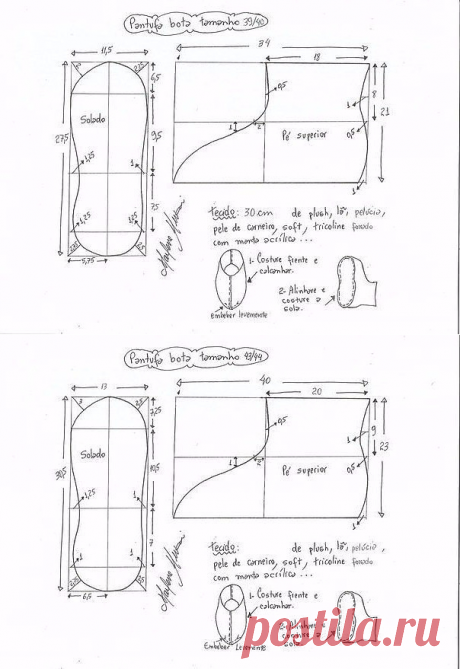 Pantufa bota tamanho 39/40
11,5
6,5
Solado
9,5
27,5
1,25
1
7,5
1,25
1,25
5,75
34
18
0,5
1
8
21
1
2
0,5
Pé superior
1
Tecido: 30 cm de plush, lã, pelúcia,
pele de carneiro, soft, tricoline forrado
com manta acrílica ...
1- Costure frente e
calcanhar.
2- Alinhave e
costure a
sola.
Embeber levemente
Pantufa bota tamanho 43/44
13
3
7,25
Solado
10,5
30,5
1,25
1
7
1
1
6,5
40
20
0,5
1
9
23
1
2
0,5
Pé superior
1
Tecido: de plush, lã, pelúcia,
pele de carneiro, soft, tricoline forrado
com manta acrílica ...
1- Costure frente e
calcanhar.
2- Alinhave e
costure a
sola.
Embeber levemente
postila.ru